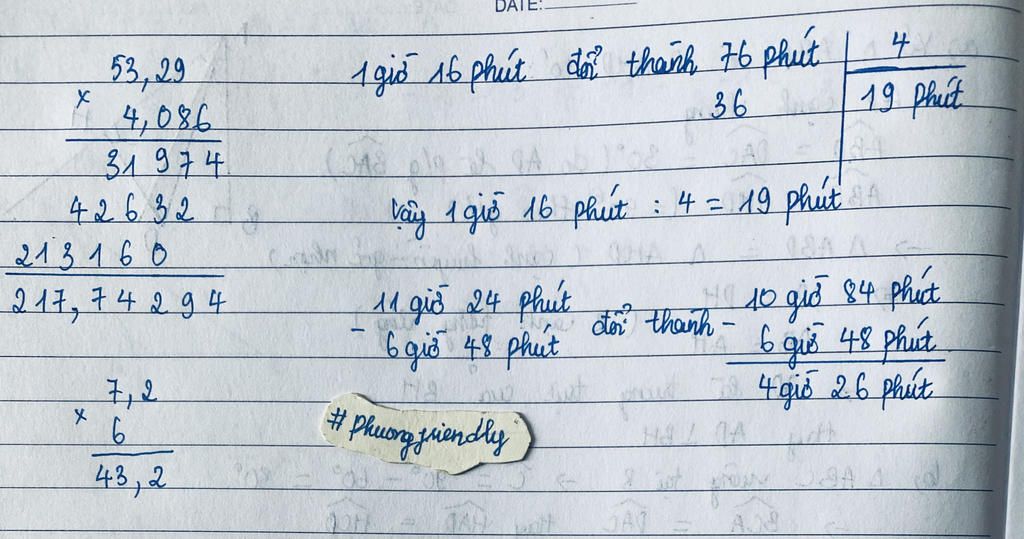 DATE:
53,29
x
4,086
31974
42632
213160
217,74294
7,2
x
6
43,2
1 giờ 16 phút đổi thành 76 phút | 4
36 | 19 phút
Vậy 1 giờ 16 phút : 4 = 19 phút
11 giờ 24 phút
- đổi thành -
6 giờ 48 phút
10 giờ 84 phút
6 giờ 48 phút
4 giờ 26 phút
#phuongfriendly